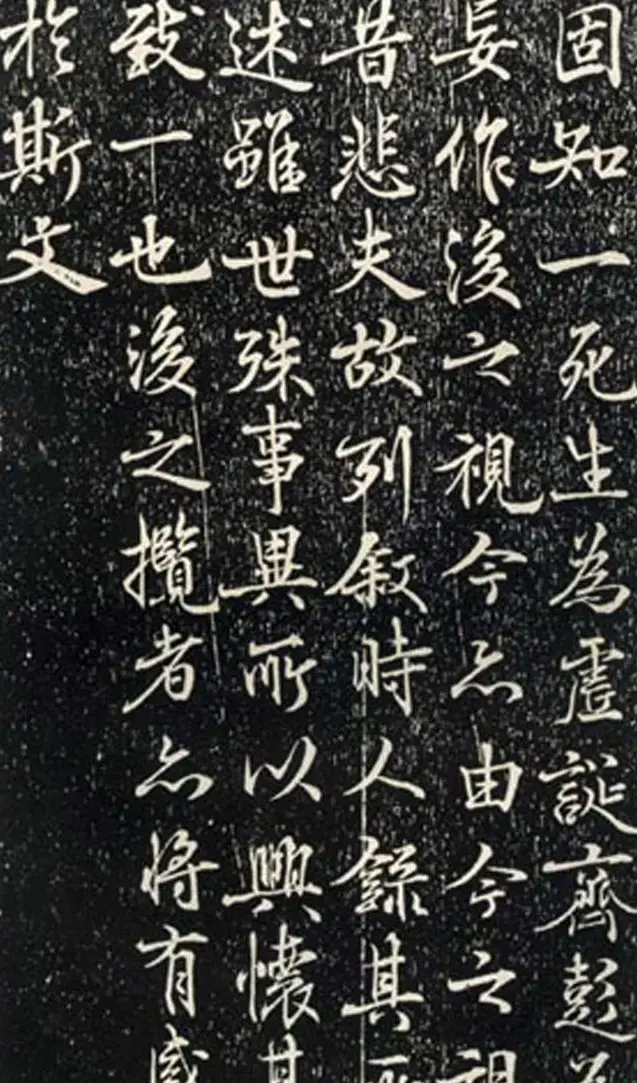 固知一死生為虛誕齊彭
妄作後之視今亦由今之視
昔悲夫故列敘時人錄其所
述雖世殊事異所以興懷其
致一也後之攬者亦將有感
於斯文